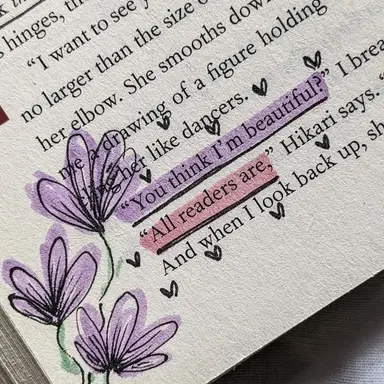 hinges, th
“I want to see y
no larger than the size o
her elbow. She smooths dow
me a drawing of a figure holding
her like dancers.
“You think I’m beautiful?” I brea
“All readers are,” Hikari says.
And when I look back up, sh